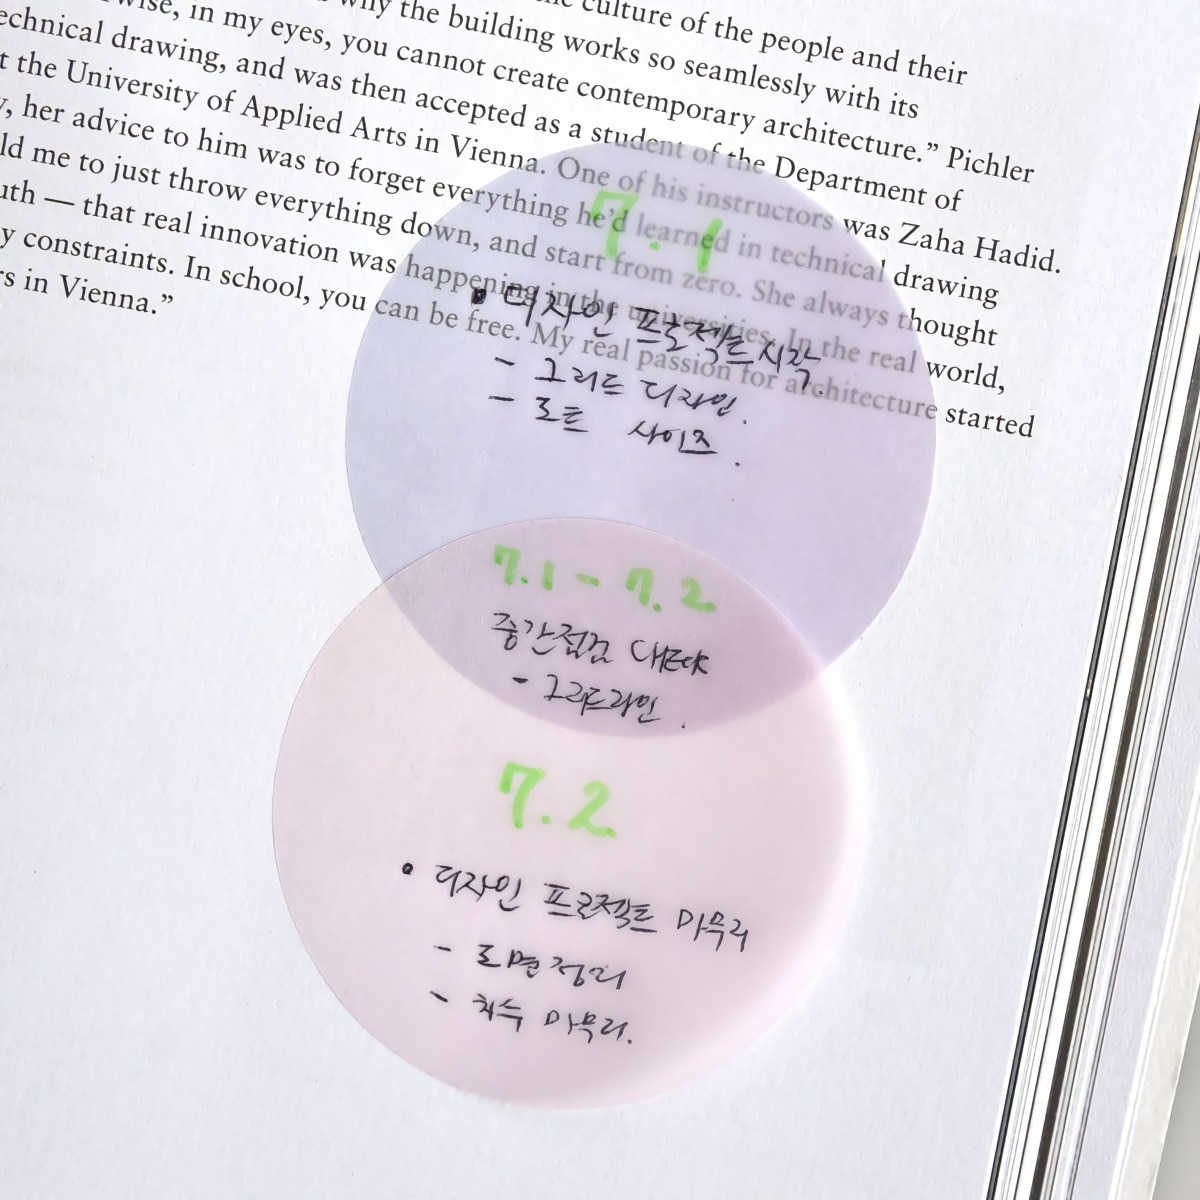 culture of the people and their
why the building works so seamlessly with its
wise, in my eyes, you cannot create contemporary architecture.” Pichler
technical drawing, and was then accepted as a student of the Department of
t the University of Applied Arts in Vienna. One of his instructors was Zaha Hadid.
y, her advice to him was to forget everything he’d learned in technical drawing
ld me to just throw everything down, and start from zero. She always thought
uth — that real innovation was happening in the universities. In the real world,
y constraints. In school, you can be free. My real passion for architecture started
rs in Vienna.”
7.1
• 디자인 프로젝트 시작.
- 그리드 디자인.
- 폰트 사이즈.
7.1 - 7.2
중간점검 CHECK
- 그리드라인.
7.2
• 디자인 프로젝트 마무리
- 도면정리
- 치수 마무리.